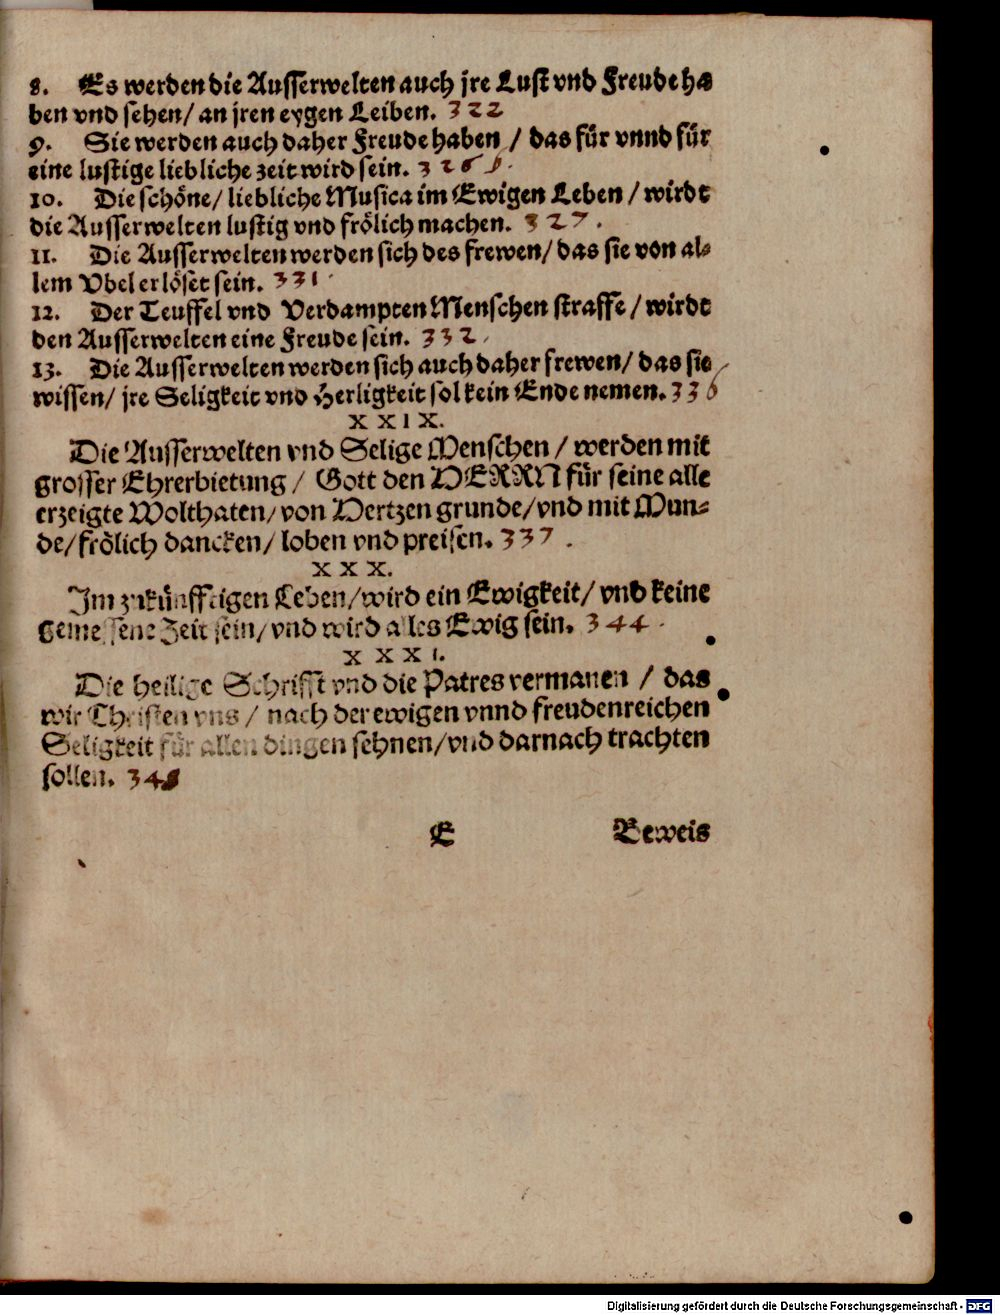 8. Es werden die Ausserwelten auch jre Lust vnd Freude ha
ben vnd sehen/ an jren eygen Leiben. 322
9. Sie werden auch daher Freude haben / das für vnnd für
eine lustige liebliche zeit wird sein.
10. Die schöne/ liebliche Musica im Ewigen Leben / wirdt
die Ausserwelten lustig vnd frölich machen. 327.
11. Die Ausserwelten werden sich des frewen/ das sie von al⸗
lem Vbel erlöset sein. 331
12. Der Teuffel vnd Verdampten Menschen straffe / wirdt
den Ausserwelten eine Freude sein. 332.
13. Die Ausserwelten werden sich auch daher frewen/ das sie
wissen/ jre Seligkeit vnd Herligkeit sol kein Ende nemen. 336
XXIX.
Die Ausserwelten vnd Selige Menschen / werden mit
grosser Ehrerbietung / Gott den HERRN für seine alle
erzeigte Wolthaten/ von Hertzen grunde/ vnd mit Mun⸗
de/ frölich dancken/ loben vnd preisen. 337.
XXX.
Im zukünfftigen Leben/ wird ein Ewigkeit/ vnd keine
gemessene Zeit sein/ vnd wird alles Ewig sein. 344.
XXXI.
Die heilige Schrifft vnd die Patres vermanen / das
wir Christen vns / nach der ewigen vnnd freudenreichen
Seligkeit für allen dingen sehnen/ vnd darnach trachten
sollen.
E Beweis
Digitalisierung gefördert durch die Deutsche Forschungsgemeinschaft - DFG